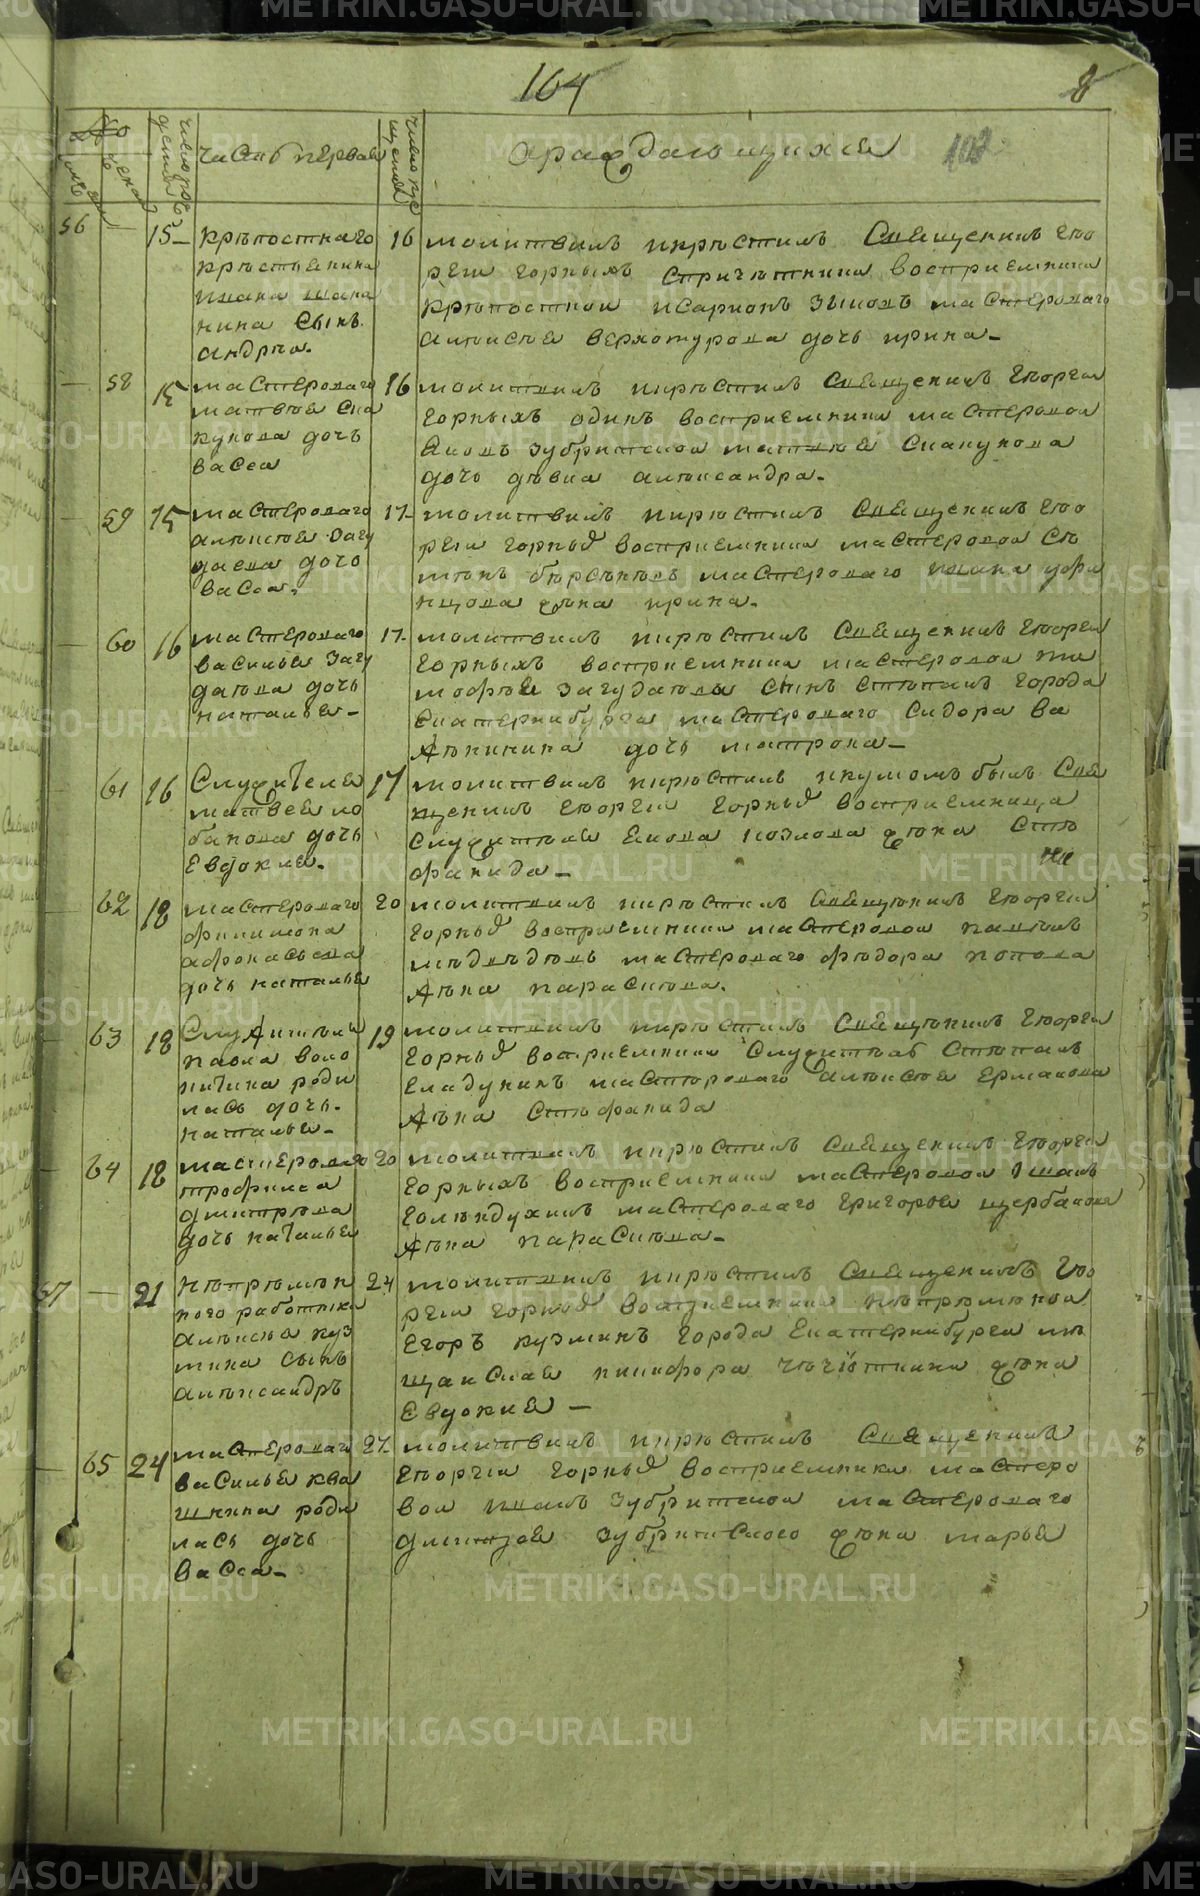 164
8
№
число рож
детей
часть первая
число кре
щенiя
ораждающихся
103
муж
жен
56
15
крѣпостнаго
крестьянина
ивана
нина сынъ
андрѣа
16
молитвилъ икрѣстилъ священникъ гѣо
рги горныхъ спричѣтники восприемники
крѣпостнои исарионъ зыковъ мастероваго
алѣксѣя верхотурова дочь ирина
58
15
мастероваго
матвѣя ска
кунова дочь
васса
16
молитвилъ икрѣстилъ священникъ гѣорги
горныхъ одинъ восприемники мастеровои
яковъ зубритскои матвѣя скакунова
дочь дѣвка алѣксандра
59
15
мастероваго
алѣксѣя загу
даева дочь
васса
17
молитвилъ икрѣстилъ священникъ гѣо
рги горныи восприемники мастеровои сѣ
мѣнъ мастероваго ивана уфи
нцова жѣна ирина
60
16
мастероваго
василья загу
даѣва дочь
наталья
17
молитвилъ икрѣстилъ священникъ гѣорги
горныхъ восприемники мастеровои ти
мофѣя загудаѣва сынъ стѣпанъ города
екатеринбурга мастероваго сидора ва
жѣнинина дочь матрона
61
16
служителя
матвея ло
банова дочь
евдокия
17
молитвилъ икрѣстилъ икумомъ былъ свя
щенникъ гѣорги горныи восприемница
служитѣля якова козлова жѣна стѣ
фанида
62
18
мастероваго
филимона
афонасьева
дочь наталья
20
молитвилъ икрѣстилъ священикъ гѣорги
горныи восприемники мастеровои павѣлъ
мѣдвѣдѣвъ мастероваго фѣдора попова
жѣна парасковѣа
63
18
служитѣля
павла воло
китина роди
лась дочь
наталья
19
молитвилъ икрѣстилъ священикъ гѣорги
горныи восприемники служитѣль стѣпанъ
еладукинъ мастѣроваго алѣксѣя ермакова
жѣна стѣфанида
64
18
мастероваго
трофима
дмитрѣва
дочь наталья
20
молитвилъ икрѣстилъ священникъ гѣорги
горныхъ восприемники мастеровои иванъ
голѣндухинъ мастероваго григорья щербакова
жѣна парасковѣа
57
21
нѣпрѣмѣн
ного работника
алѣксѣа куз
мина сынъ
алѣксандръ
24
молитвилъ икрѣстилъ священникъ гѣо
рги горныи восприемники нѣпрѣмѣнои
егоръ кузминъ города екатеринбурга мѣ
щанская никифора жѣна
евдокия
65
24
мастероваго
василья ква
шнина роди
лась дочь
васса
27
молитвилъ икрѣстилъ священникъ
гѣорги горныи восприемники мастеро
вои иванъ зубритскои мастероваго
дмитрея зубритского жѣна марья
METRIKI.GASO-URAL.RU